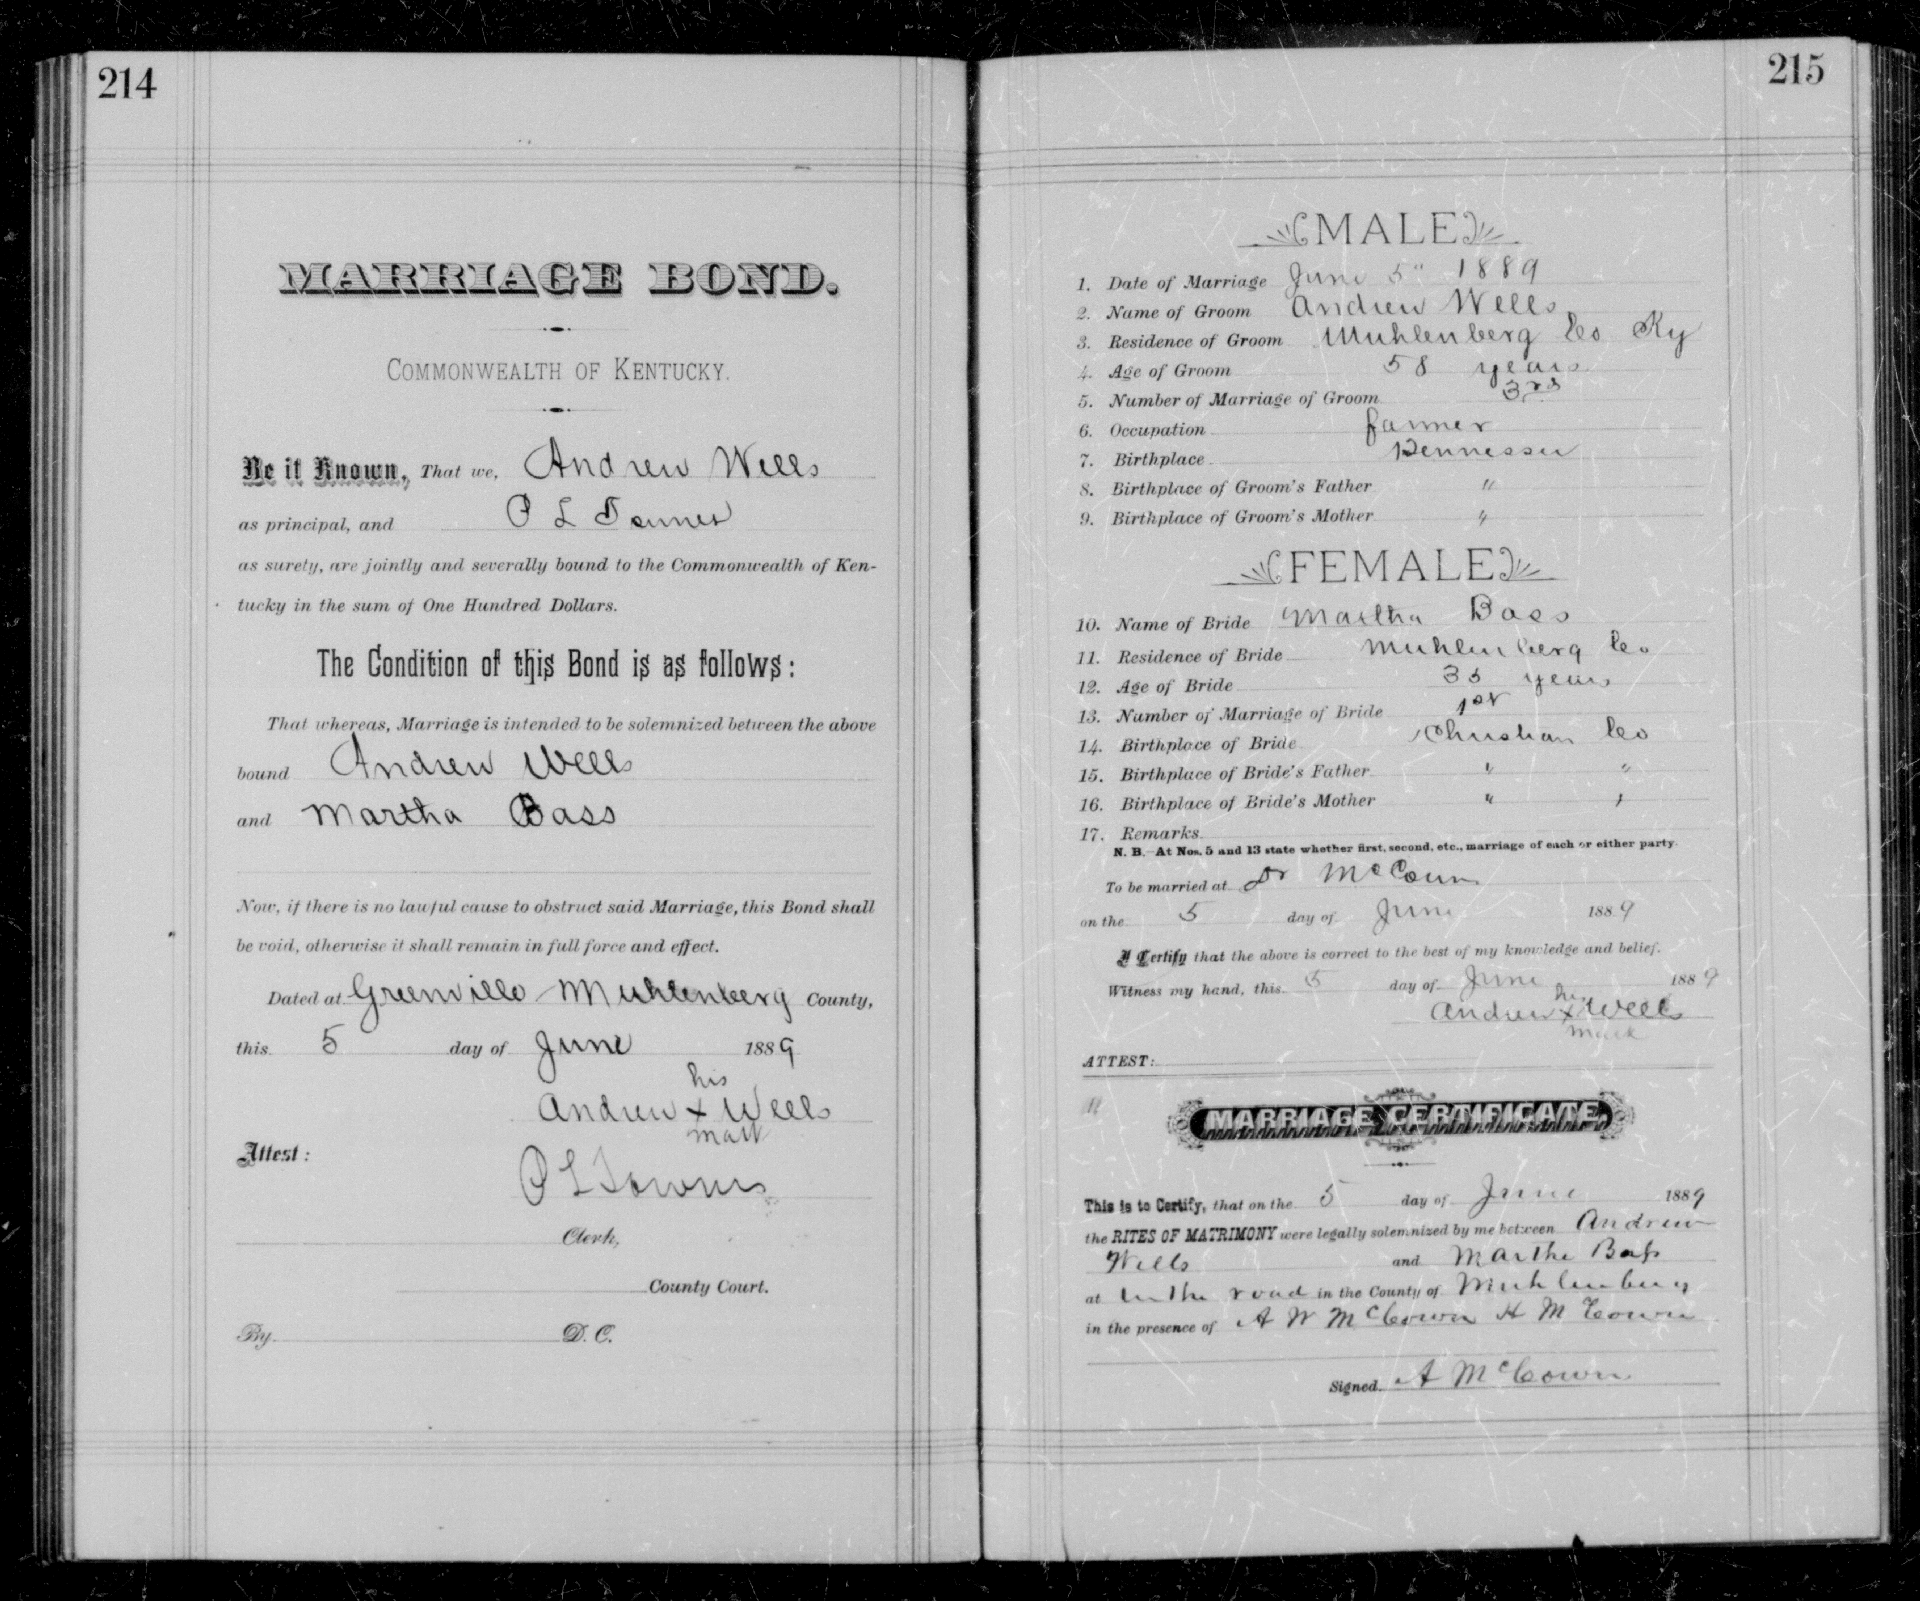 214
MARRIAGE BOND.
COMMONWEALTH OF KENTUCKY.
Be it Known, That we, Andrew Wells
as principal, and P L
as surety, are jointly and severally bound to the Commonwealth of Ken-
tucky in the sum of One Hundred Dollars.
The Condition of this Bond is as follows:
That whereas, Marriage is intended to be solemnized between the above
bound Andrew Wells
and Martha Bass
Now, if there is no lawful cause to obstruct said Marriage, this Bond shall
be void, otherwise it shall remain in full force and effect.
Dated at Greenville Muhlenberg County,
this 5 day of June 1889
his
Andrew x Wells
mark
Attest:
P L
Clerk,
County Court.
By D. C.
215
MALE
1. Date of Marriage June 5" 1889
2. Name of Groom Andrew Wells
3. Residence of Groom Muhlenberg Co Ky
4. Age of Groom 58 years
5. Number of Marriage of Groom 3rd
6. Occupation farmer
7. Birthplace Tennessee
8. Birthplace of Groom's Father "
9. Birthplace of Groom's Mother "
FEMALE
10. Name of Bride Martha Bass
11. Residence of Bride Muhlenberg Co
12. Age of Bride years
13. Number of Marriage of Bride 1st
14. Birthplace of Bride Christian Co
15. Birthplace of Bride's Father " "
16. Birthplace of Bride's Mother " "
17. Remarks
N. B.—At Nos. 5 and 13 state whether first, second, etc., marriage of each or either party.
To be married at Dr McCown
on the 5 day of June 1889
I Certify that the above is correct to the best of my knowledge and belief.
Witness my hand, this 5 day of June 1889
his
Andrew x Wells
mark
ATTEST:
MARRIAGE CERTIFICATE.
This is to Certify, that on the 5 day of June 1889
the RITES OF MATRIMONY were legally solemnized by me between Andrew
Wells and Martha Bass
at in the road in the County of Muhlenberg
in the presence of A W McCown H McCown
Signed A McCown